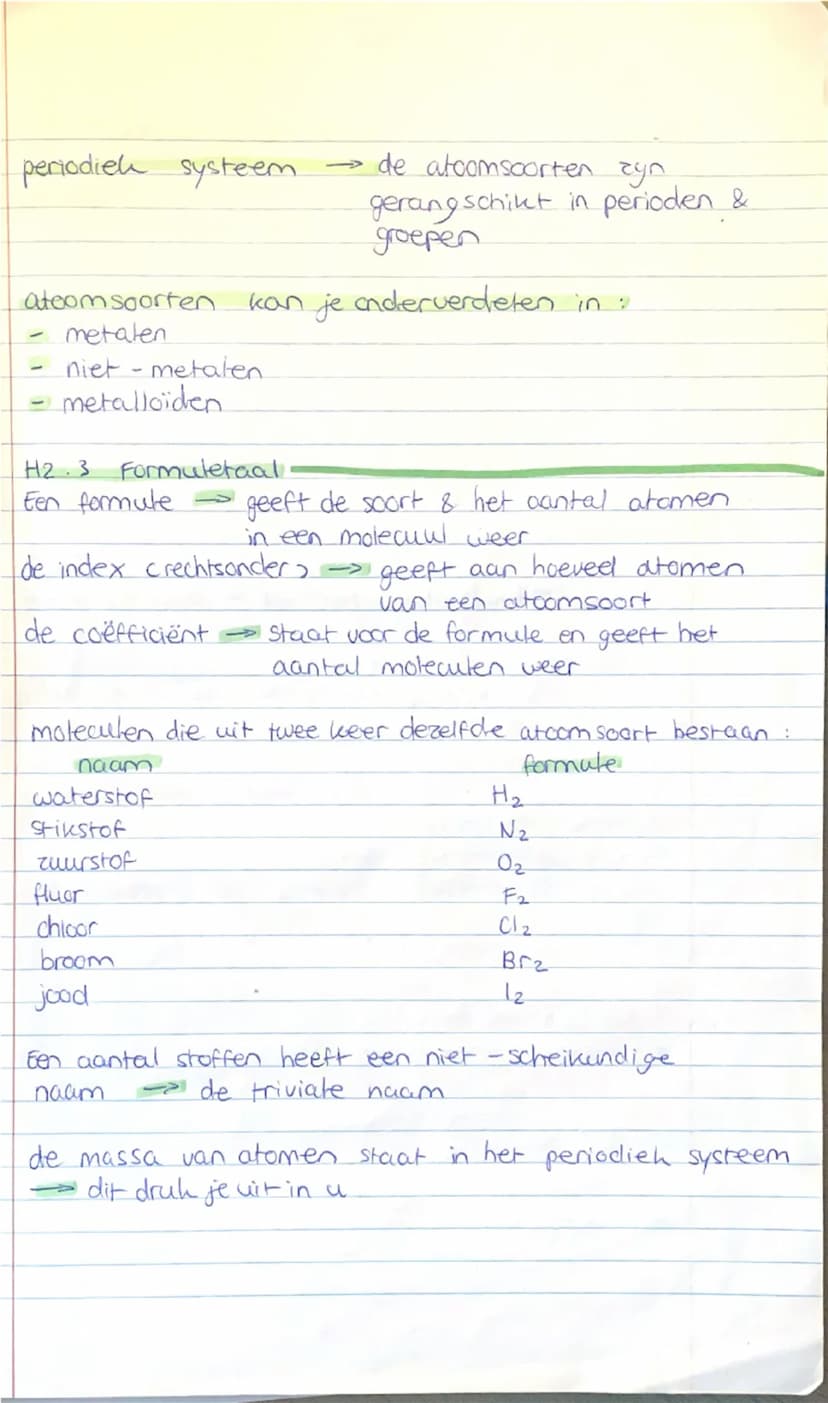 periodiek systeem → de atoomsoorten zijn
gerangschikt in perioden &
groepen
atoomsoorten kan je onderverdelen in :
- metalen
- niet - metalen
- metalloïden
H2.3 Formuletaal
Een formule → geeft de soort & het aantal atomen
in een molecuul weer
de index (rechtsonder) → geeft aan hoeveel atomen
van een atoomsoort
de coëfficiënt → staat voor de formule en geeft het
aantal moleculen weer
moleculen die uit twee keer dezelfde atoomsoort bestaan :
naam formule
waterstof H₂
stikstof N₂
zuurstof O₂
fluor F₂
chloor Cl₂
broom Br₂
jood I₂
Een aantal stoffen heeft een niet - scheikundige
naam → de triviale naam
de massa van atomen staat in het periodiek systeem
→ dit druk je uit in u